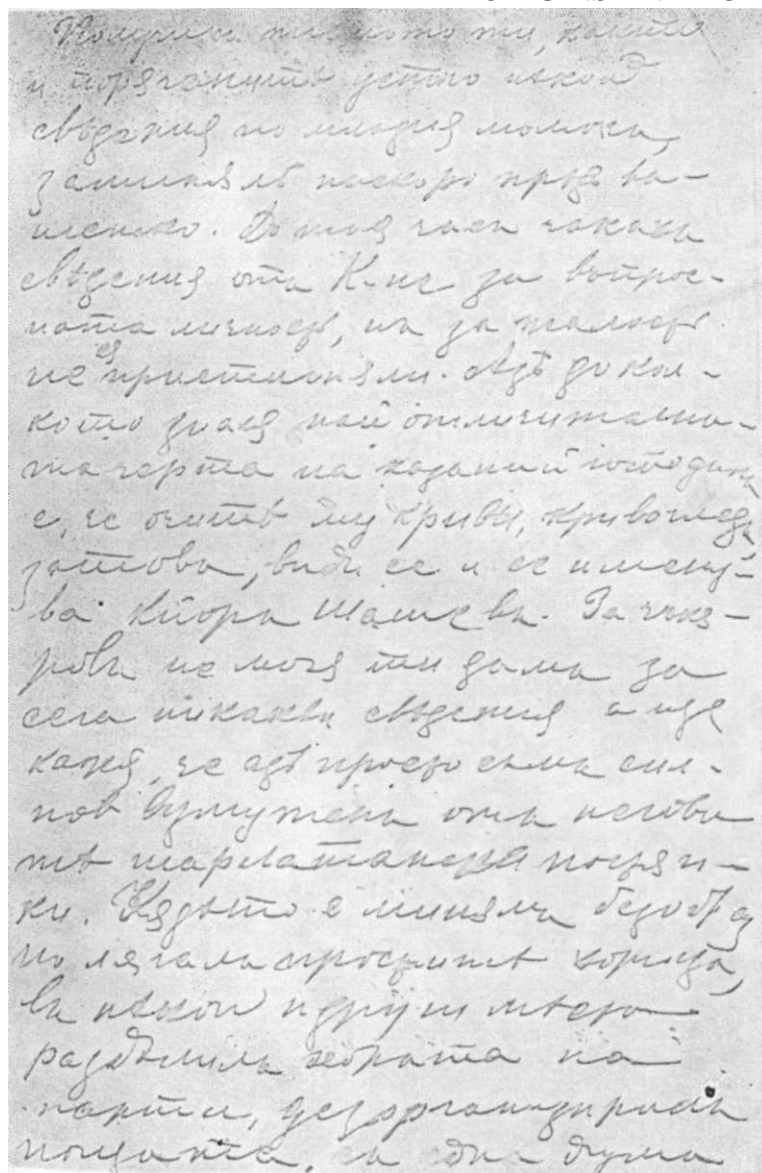 Получихъ писмото ти, както
и поръчанитѣ устно нѣкои
свѣдения по младия момъкъ,
заминалъ наскоро предъ ва-
шенско. До тоя часъ чакахъ
свѣдения отъ К-ие за въпрос-
ната личность, нъ за жалость
не ся пристигнали. Азъ до кол-
кото зная най отличителна-
та черта на казаний господинъ
е, че очитѣ му криви, кривогледъ,
затова, види се и се имену-
ва Кйоръ Шашевъ. За
не мога ти дамъ за
сега никакви сведения а ще
кажя, че азъ просто съмъ сил-
но отъ негови
тѣ шарлатански постѫп-
ки. Кѫдѣто е миналъ безобраз
но лъгалъ проститѣ хорица,
въ нѣкои и други мѣста
раздѣлилъ хората на
партии, дезорганизиралъ
пощата, съ една дума